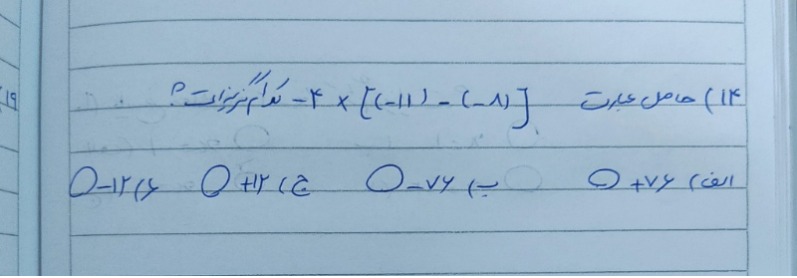 ۱۴) حاصل عبارت [(-۱۱) - (-۸)] × ۴- کدام گزینه است؟
الف) +۷۶ ب) -۷۶ ج) +۱۲ د) -۱۲
۱۹)